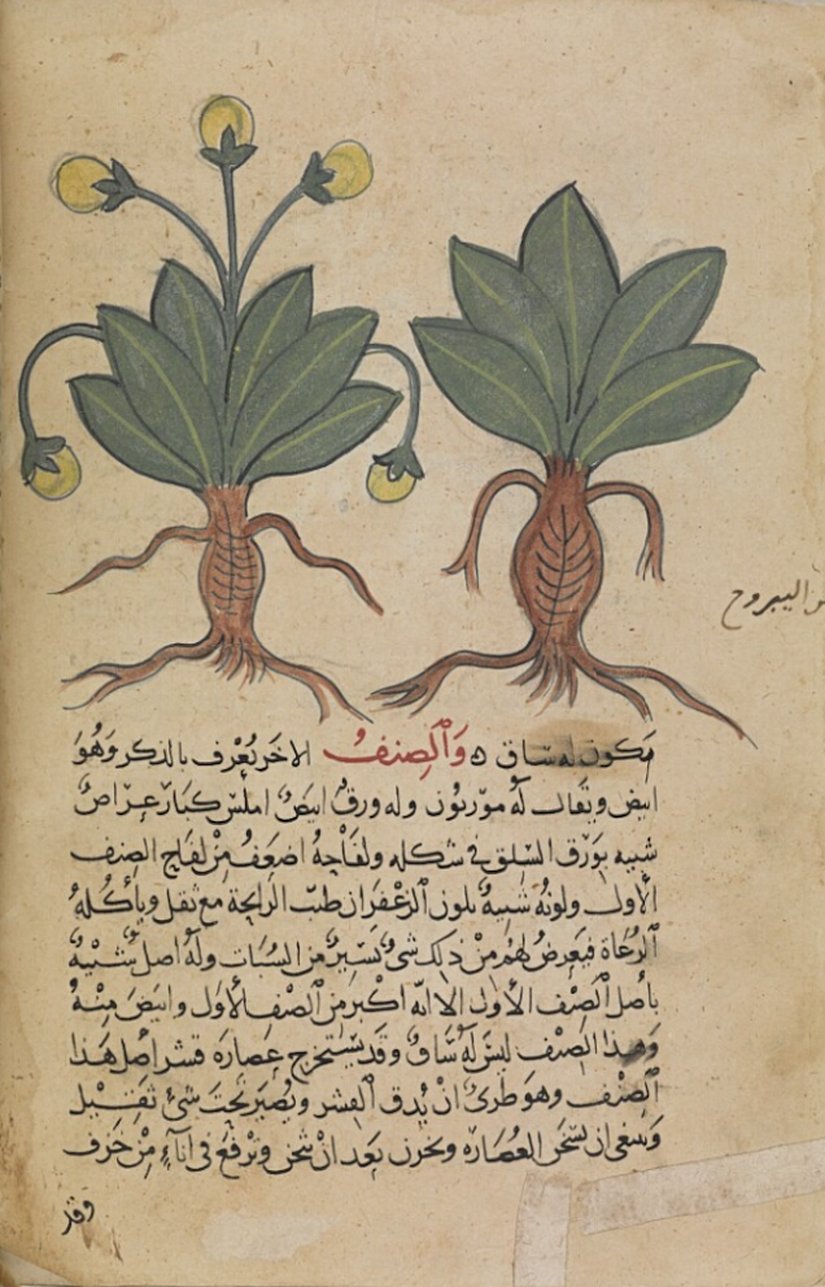 و اليبروح
يكون له ساق ه وَٱلصِنفُ الاخَر يُعْرف بالذكر وَهُوَ
ابيض ويقال لَهُ موّريون وله ورقٌ ابيَضٌ املَسٌ كبارٌ عِرَاضٌ
شبيه بوَرَق السّلق في شكله ولفاحِهُ اضعَفُ مِنْ لفاح الصنف
الأول ولونُهُ شبيهٌ بلون ٱلزعْفران طيّب الرَايحة مع ثقل ويأكُلهُ
ٱلرُعَاة فيَعرضُ لهُم مِنْ ذلك شىٌ يَسيرٌ من السُبَات ولهُ اصل شَبْيهٌ
باصل ٱلصِنف الأول الا انّه اكبر من ٱلصّنف الأوَل وابيَضَ مِنهُ
وَهذا الصِنف ليسَ لَهُ سَاقٌ وقد يستخرج عصَارَة قشر اصل هَذا
ٱلصِنف وهوَ طرىٌ انْ يُدق ٱلقشر ويُصيَر تحتَ شىٍ ثقيْل
وَينبغى ان تسخن العُصَارَة وتخزن بَعد انْ تثخن وتُرفَع فى انآءٍ مِنْ خزف
وقد